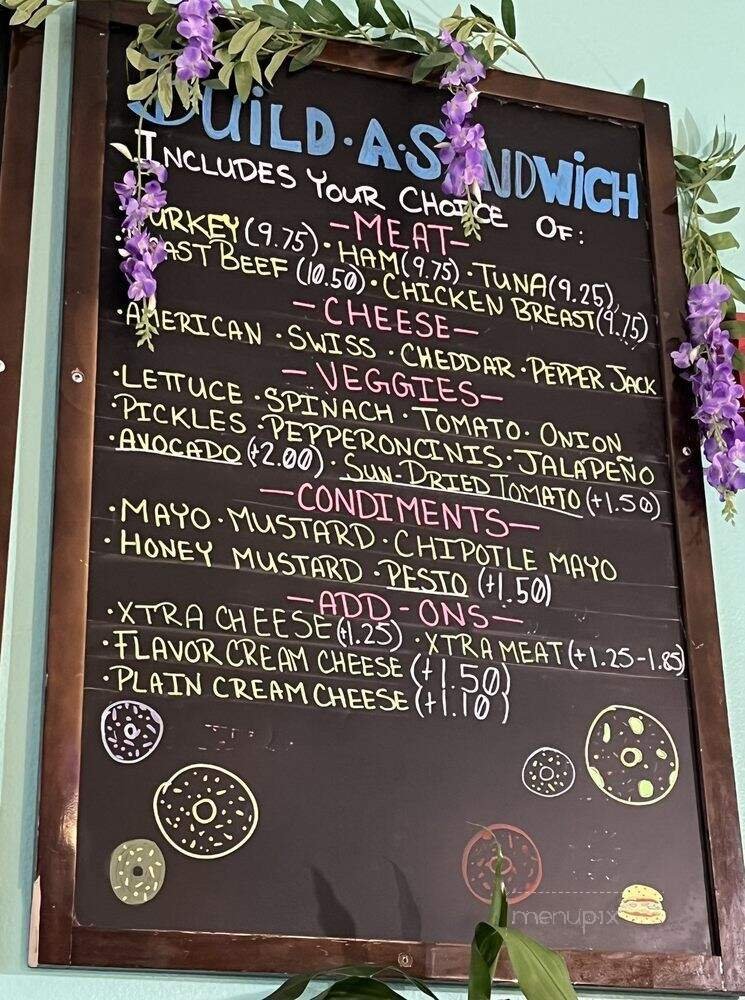 BUILD·A·SANDWICH
INCLUDES YOUR CHOICE OF:
-MEAT-
·TURKEY (9.75)·HAM (9.75)·TUNA (9.25)
·ROAST BEEF (10.50)·CHICKEN BREAST (9.75)
-CHEESE-
·AMERICAN ·SWISS ·CHEDDAR ·PEPPER JACK
-VEGGIES-
·LETTUCE ·SPINACH ·TOMATO ·ONION
PICKLES ·PEPPERONCINIS ·JALAPEÑO
·AVOCADO (+2.00) ·SUN-DRIED TOMATO (+1.50)
-CONDIMENTS-
·MAYO ·MUSTARD ·CHIPOTLE MAYO
·HONEY MUSTARD ·PESTO (+1.50)
-ADD-ONS-
·XTRA CHEESE (+1.25) ·XTRA MEAT (+1.25-1.85)
·FLAVOR CREAM CHEESE (+1.50)
·PLAIN CREAM CHEESE (+1.10)
menupix